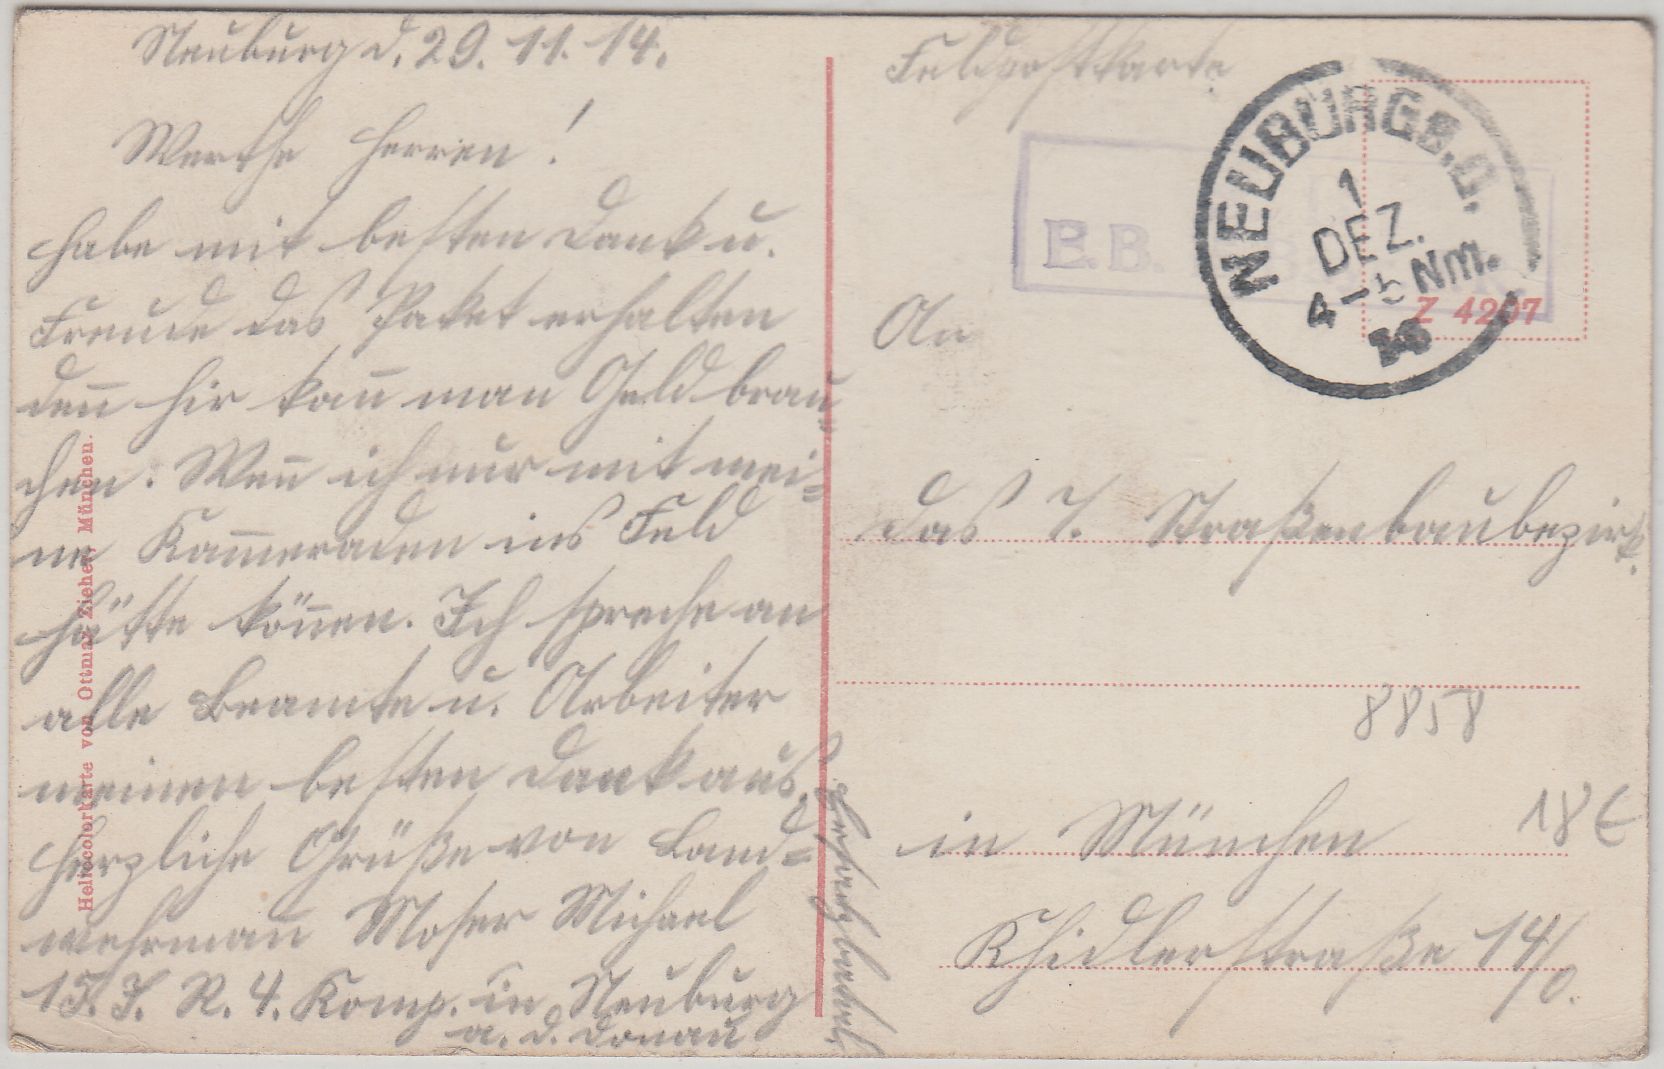 Neuburg d. 29. 11. 14.
Werthe Herren!
habe mit besten Dank u.
Freude das Paket erhalten
den̄ hir kan̄ man Geld brau„
chen. Wen̄ ich nur mit mei=
ne Kam̄eraden ins Feld
hätte kön̄en. Ich spreche an
alle Beamte u. Arbeiter
meinen besten Dank aus.
Herzliche Grüße von Land=
wehrman̄ Moser Michael
15. I. R. 4. Komp. in Neuburg
a. d. Donau
Heliocolorkarte von Ottmar Zieher, München.
Feldpostkarte
E.B.
NEUBURG a. D.
1
DEZ.
4-5 Nm.
Z 4207
An
das I. Straßenbaubezirk.
8858
in München
18 €
Khidlerstraße 14/0.